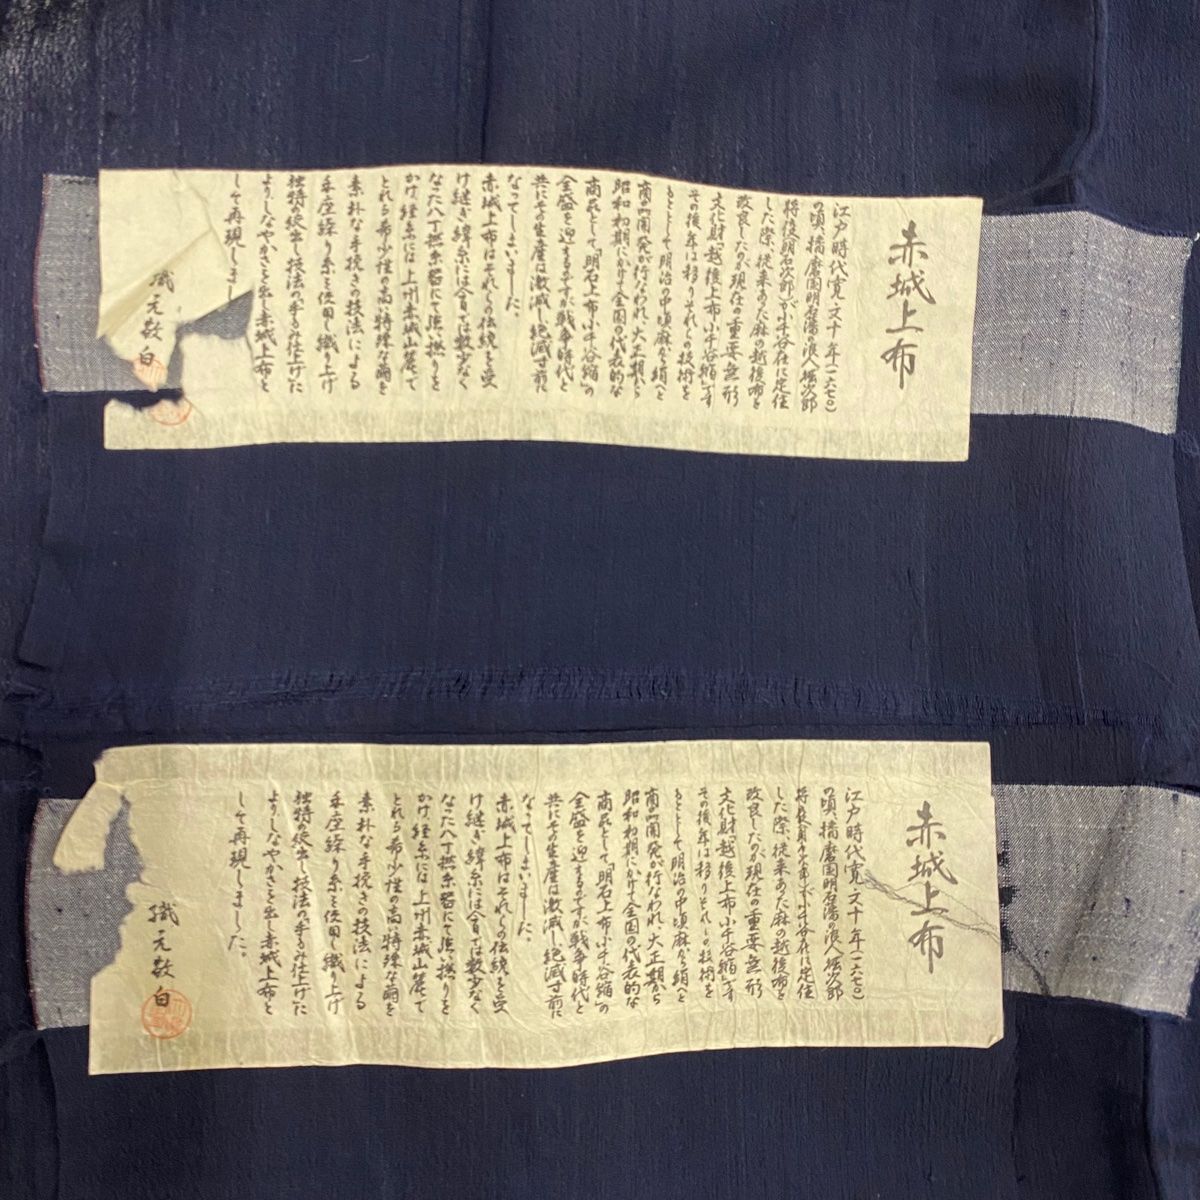 赤城上布
江戸時代寛文十年(一六七〇)
の頃、播磨国明石藩の浪人堀次郎
将俊(明石次郎)が小千谷在に定住
した際、従来あった麻の越後布を
改良したのが現在の重要無形
文化財「越後上布小千谷縮」です
その後年は移りそれらの技術を
もととして明治の中頃麻から絹へと
商品開発が行なわれ、大正期から
昭和初期にかけて全国の代表的な
商品として「明石上布小千谷縮」の
全盛を迎えるのですが戦争時代と
共にその生産は激減し絶滅寸前に
なってしまいました。
赤城上布はそれらの伝統を受
け継ぎ緯糸には今では数少なく
なった八丁撚糸器にて強撚りを
かけ、経糸には上州赤城山麓で
とれる希少性の高い特殊な繭を
素朴な手挽きの技法による
本座繰り糸を使用し織り上げ
独特の絞出し技法の手もみ仕上げに
よりしなやかさを出し赤城上布と
して再現しまし
織元敬白
赤城上布
江戸時代寛文十年(一六七〇)
の頃、播磨国明石藩の浪人堀次郎
将俊(明石次郎)が小千谷在に定住
した際、従来あった麻の越後布を
改良したのが現在の重要無形
文化財「越後上布小千谷縮」です
その後年は移りそれらの技術を
もととして明治の中頃麻から絹へと
商品開発が行なわれ、大正期から
昭和初期にかけて全国の代表的な
商品として「明石上布小千谷縮」の
全盛を迎えるのですが戦争時代と
共にその生産は激減し絶滅寸前に
なってしまいました。
赤城上布はそれらの伝統を受
け継ぎ緯糸には今では数少なく
なった八丁撚糸器にて強撚りを
かけ、経糸には上州赤城山麓で
とれる希少性の高い特殊な繭を
素朴な手挽きの技法による
本座繰り糸を使用し織り上げ
独特の絞出し技法の手もみ仕上げに
よりしなやかさを出し赤城上布と
して再現しました。
織元敬白